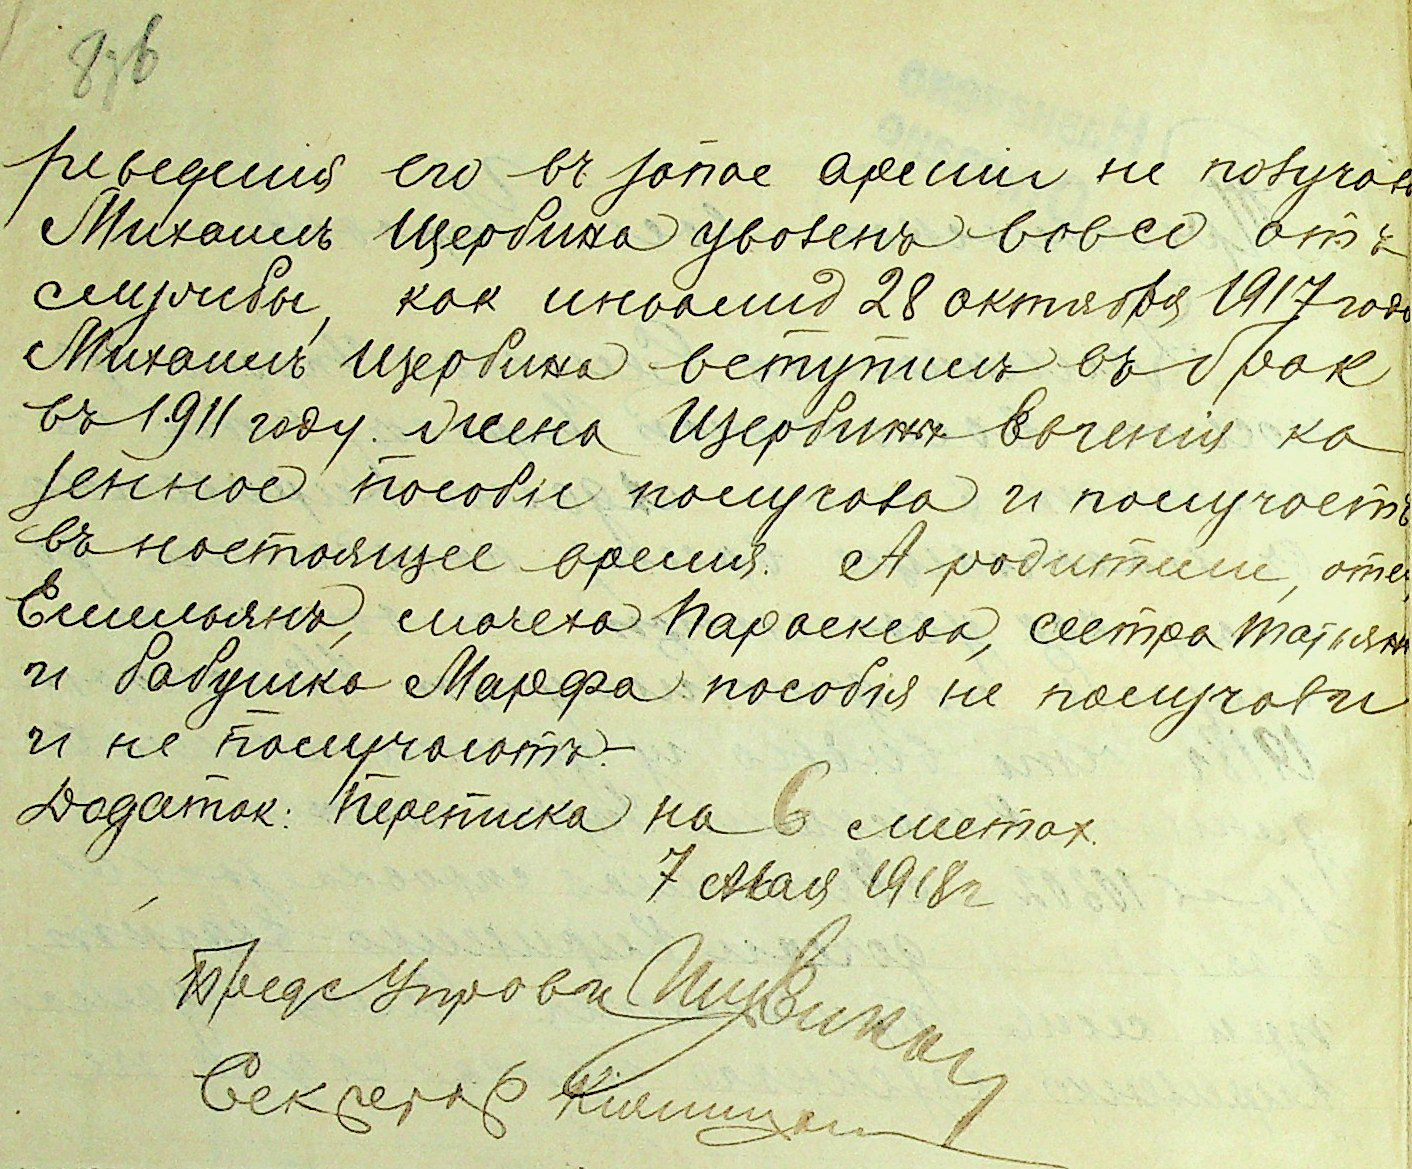 8зв
реведения его въ запас армии не получал
Михаилъ Щербина уволенъ вовсе отъ
службы, как инвалид 28 октября 1917 года
Михаилъ Щербина вступилъ въ брак
въ 1911 году. Жена Щербины Евгения ка
зенное пособие получала и получаетъ
въ настоящее время. А родители, отец
Емельянъ, мачеха Параскева, сестра Татьяна
и бабушка Марфа пособия не получали
и не получаютъ.
Додаток: Переписка на 6 листах.
7 Мая 1918 г
Предс Управи
Секретар